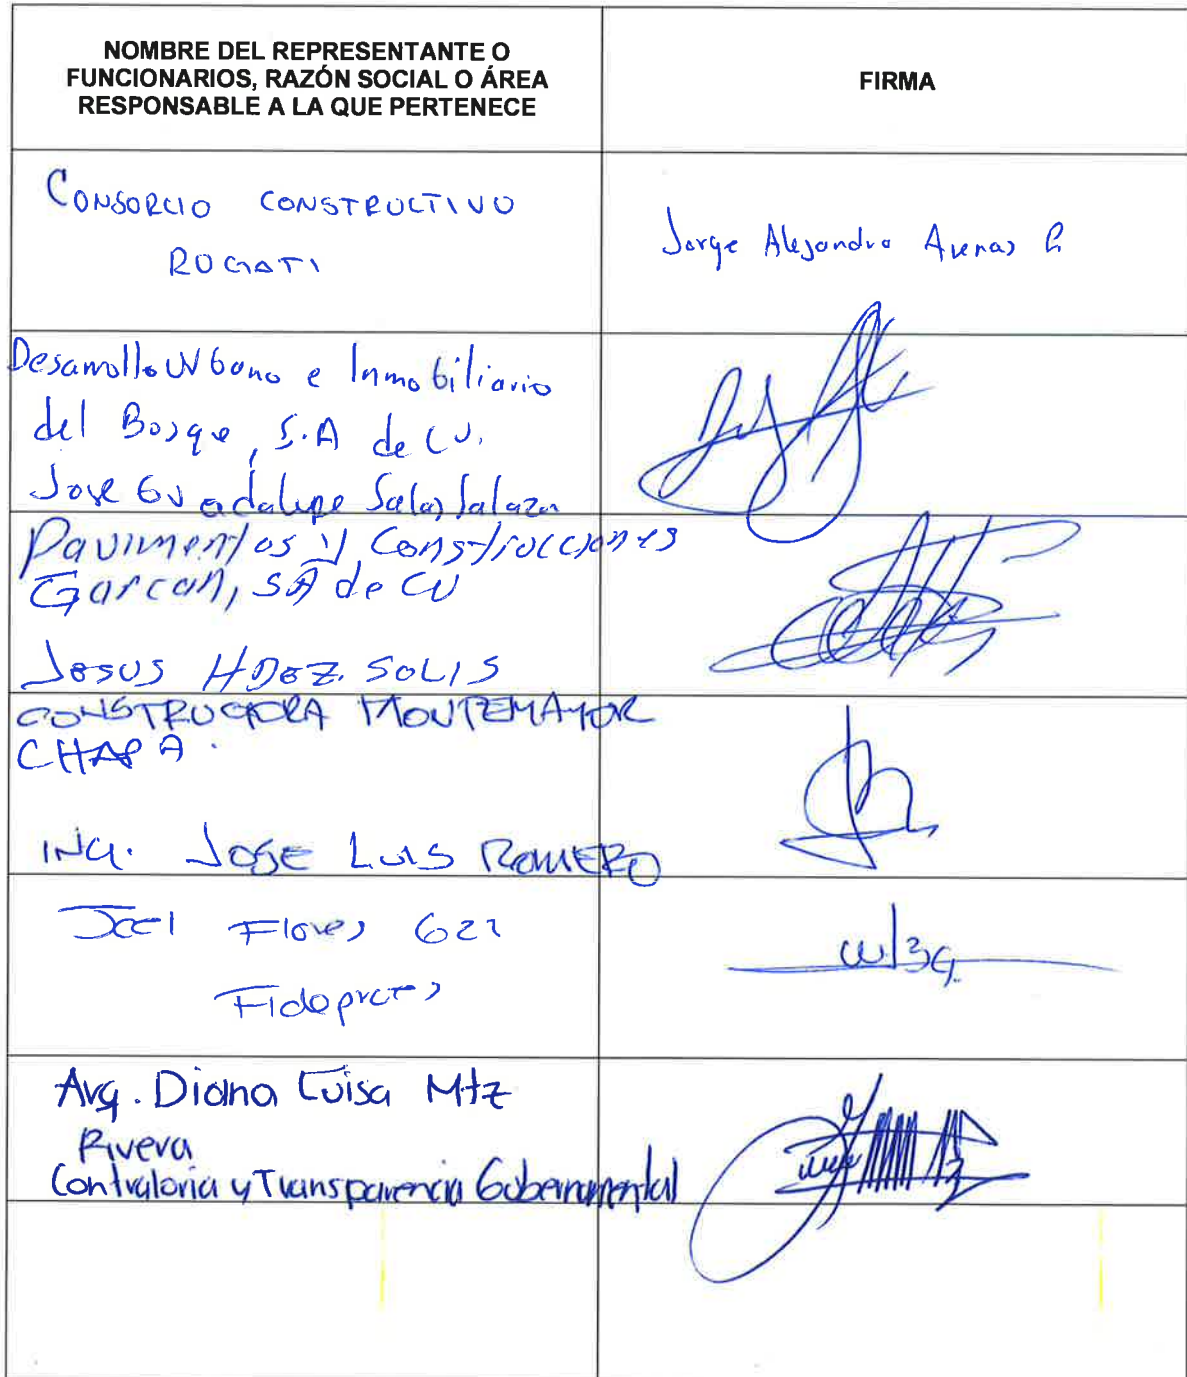 NOMBRE DEL REPRESENTANTE O
FUNCIONARIOS, RAZÓN SOCIAL O ÁREA
RESPONSABLE A LA QUE PERTENECE
FIRMA
CONSORCIO CONSTRUCTIVO
ROGATI
Jorge Alejandro Arenas
Desarrollo Urbano e Inmobiliario
del Bosque, S.A de C.V.
Jose Guadalupe Salas Salazar
Pavimentos y Construcciones
Garcan, SA de CV
JESUS HDEZ. SOLIS
CONSTRUCTORA MONTEMAYOR
CHAPA.
ING. JOSE LUIS ROMERO
Flores
Arq. Diana Luisa Mtz
Rivera
Contraloria y Transparencia Gubernamental